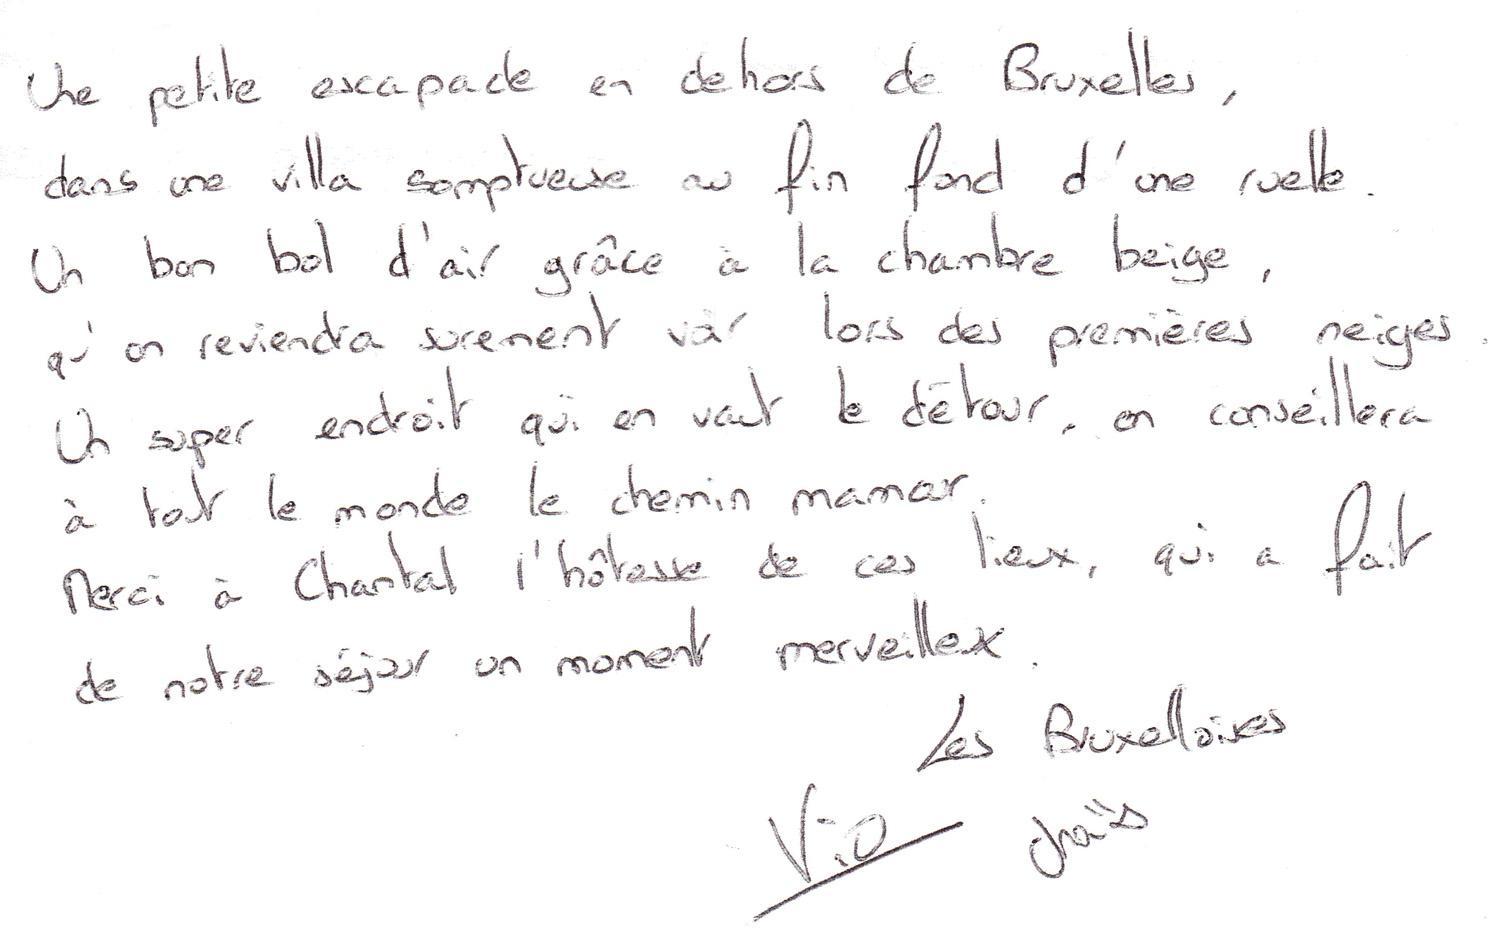 Une petite escapade en dehors de Bruxelles,
dans une villa somptueuse au fin fond d'une ruelle.
Un bon bol d'air grâce à la chambre beige,
qu'on reviendra surement voir lors des premières neiges.
Un super endroit qui en vaut le détour, on conseillera
à tout le monde le chemin mamour.
Merci à Chantal l'hôtesse de ces lieux, qui a fait
de notre séjour un moment merveilleux.
Les Bruxelloises
Vio